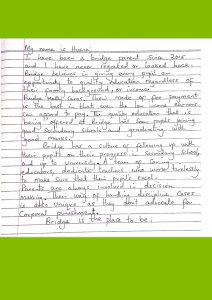 My name is Husna
I have been a bridge parent since 2015
and I have never regreted or looked back.
Bridge believes in giving every pupil an
opportunity to quality education regardless of
their family background or income.
Bridge really cares. Their mode of fee payment
is the best in that even the low income earners
can afford to pay. The quality education that is
being offered at Bridge has seen pupils joining
good secondary schools and graduating with
good marks.
Bridge has a culture of following up with
their pupils on their progress in secondary school,
and up to university. A team of seniour
educators, dedicated teachers who work tirelessly
to make sure that their pupils excel.
Parents are always involved in decision
making. Their way of handling discipline cases
is also unique as they don't advocate for
Corporal punishment.
Bridge is the place to be.